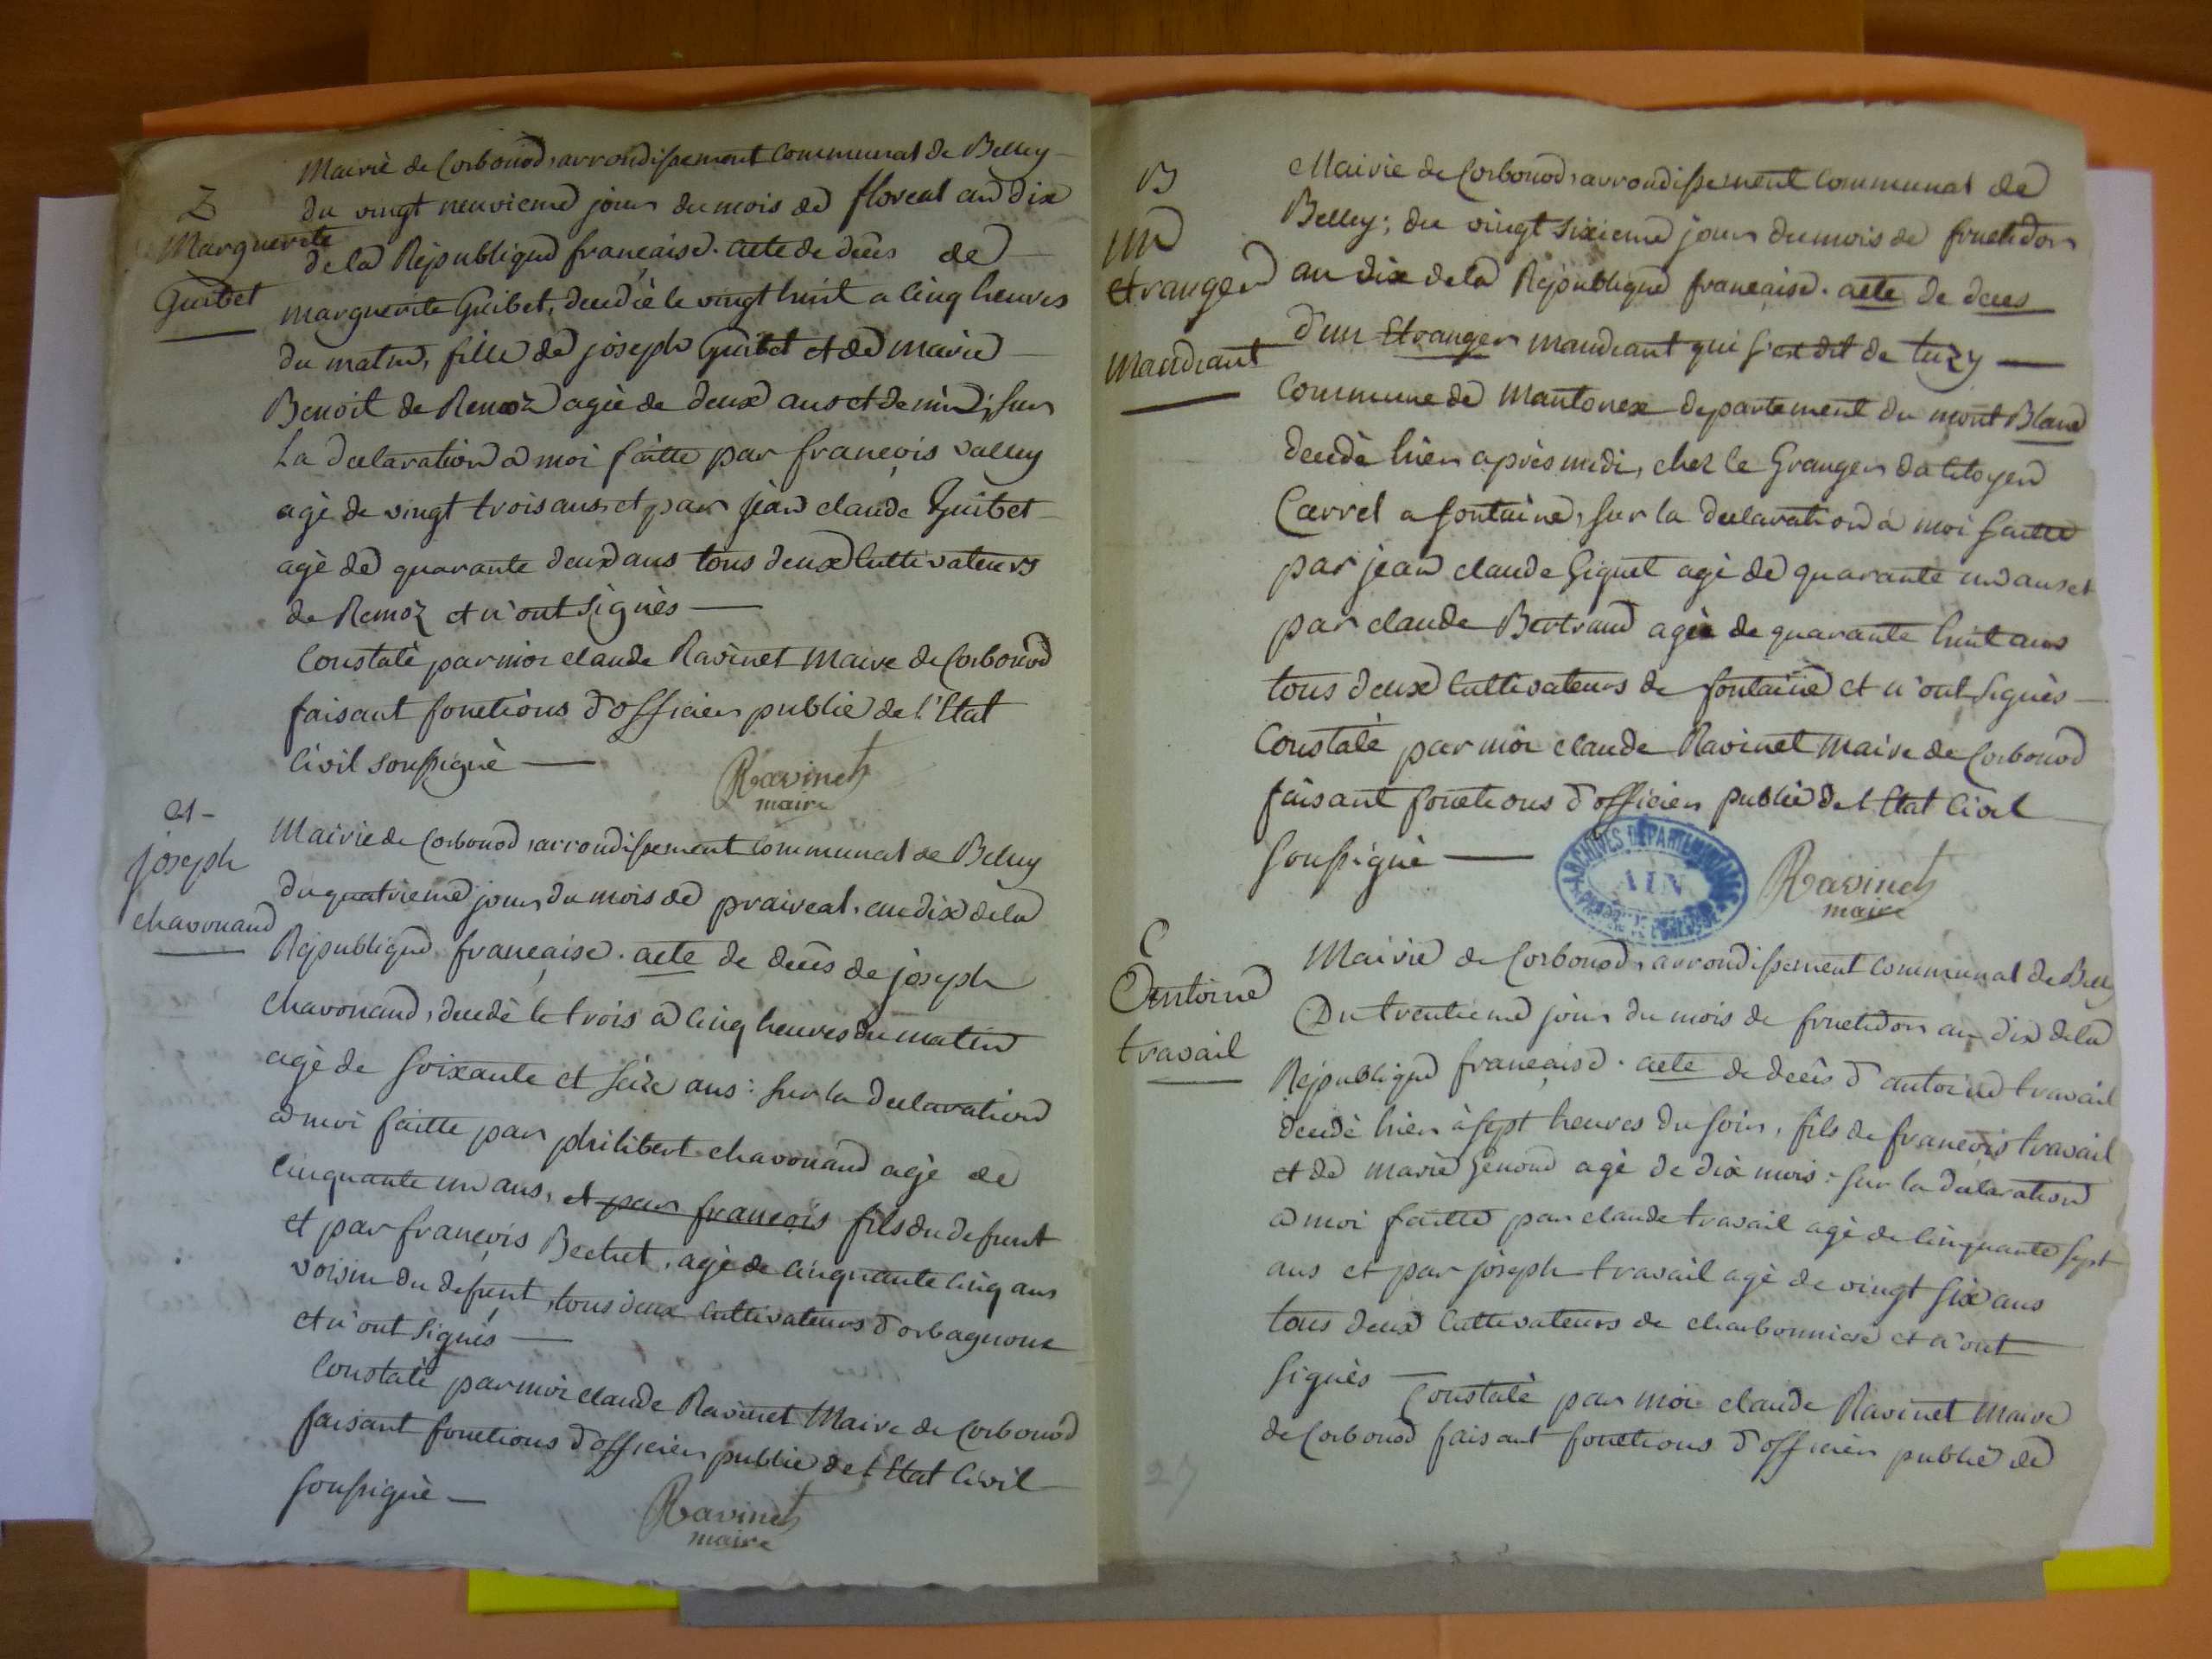 Z
Marguerite
Guibet
Mairie de Corbonod, arrondissement communal de Belley
du vingt neuvieme jour du mois de floreal an dix
de la Republique française. acte de deces de
marguerite Guibet, decedée le vingt huit a cinq heures
du matin, fille de joseph Guibet et de marie
Benoit de Remoz agée de deux ans et demi, sur
La declaration a moi faitte par françois valley
agé de vingt trois ans et par jean claude Guibet
agé de quarante deux ans tous deux Cultivateurs
de Remoz et n'ont signés
Constaté par moi claude Ravinet Maire de Corbonod
faisant fonctions d'officier public de l'Etat
Civil soussigné
Ravinet
maire
a
joseph
chavouand
Mairie de Corbonod, arrondissement Communal de Belley
du quatrieme jour du mois de praireal, an dix de la
Republique française. acte de decès de joseph
chavouand, decedé le trois a cinq heures du matin
agé de soixante et seize ans : sur la declaration
a moi faitte par philibert chavouand agé de
cinquante un ans, et par françois fils du defunt
et par françois Bechet, agé de cinquante cinq ans
voisin du defunt, tous deux cultivateurs d'orbagnoux
et n'ont signés
Constaté par moi claude Ravinet Maire de Corbonod
faisant fonctions d'officier public de l'Etat Civil
soussigné
Ravinet
maire
B
un
etranger
Mandiant
Mairie de Corbonod, arrondissement communal de
Belley; du vingt sixieme jour du mois de fructidor
an dix de la Republique française. acte de deces
d'un Etranger mandiant qui s'est dit de tuzy
Commune de Mantonex departement du mont Blanc
decedé hier après midi, chez le Granger du Citoyen
Carrel a fontaine, sur la declaration a moi faitte
par jean claude Giquet agé de quarante un ans et
par claude Bertrand agée de quarante huit ans
tous deux Cultivateurs de fontaine et n'ont signés
Constaté par moi claude Ravinet Maire de Corbonod
faisant fonctions d'officier public de l'Etat Civil
soussigné
ARCHIVES DÉPARTEMENTALES
AIN
Ravinet
maire
C
Antoine
travail
Mairie de Corbonod, arrondissement Communal de Belley
Du trentieme jour du mois de fructidor an dix de la
Republique française. acte de decès d'antoine travail
decedé hier à sept heures du soir, fils de françois travail
et de marie Genoud agé de dix mois : sur la declaration
a moi faitte par claude travail agé de cinquante sept
ans et par joseph travail agé de vingt six ans
tous deux Cultivateurs de charbonniere et n'ont
signés
Constaté par moi claude Ravinet Maire
de Corbonod faisant fonctions d'officier public de
27